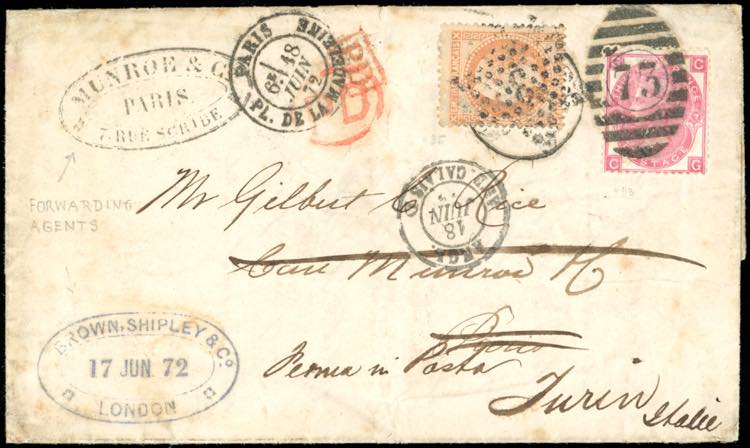 MUNROE & Co
PARIS
7. RUE SCRIBE
PARIS
6E
18
JUIN
72
PL. DE LA MADELEINE
PD
73
C G
POSTAGE
FORWARDING
AGENTS
ANGL.
18
JUIN
CALAIS
Mr Gilbert C Rice
Care Munroe
Paris
Ferma in Posta
Turin
Italie
BROWN, SHIPLEY & Co.
17 JUN. 72
LONDON